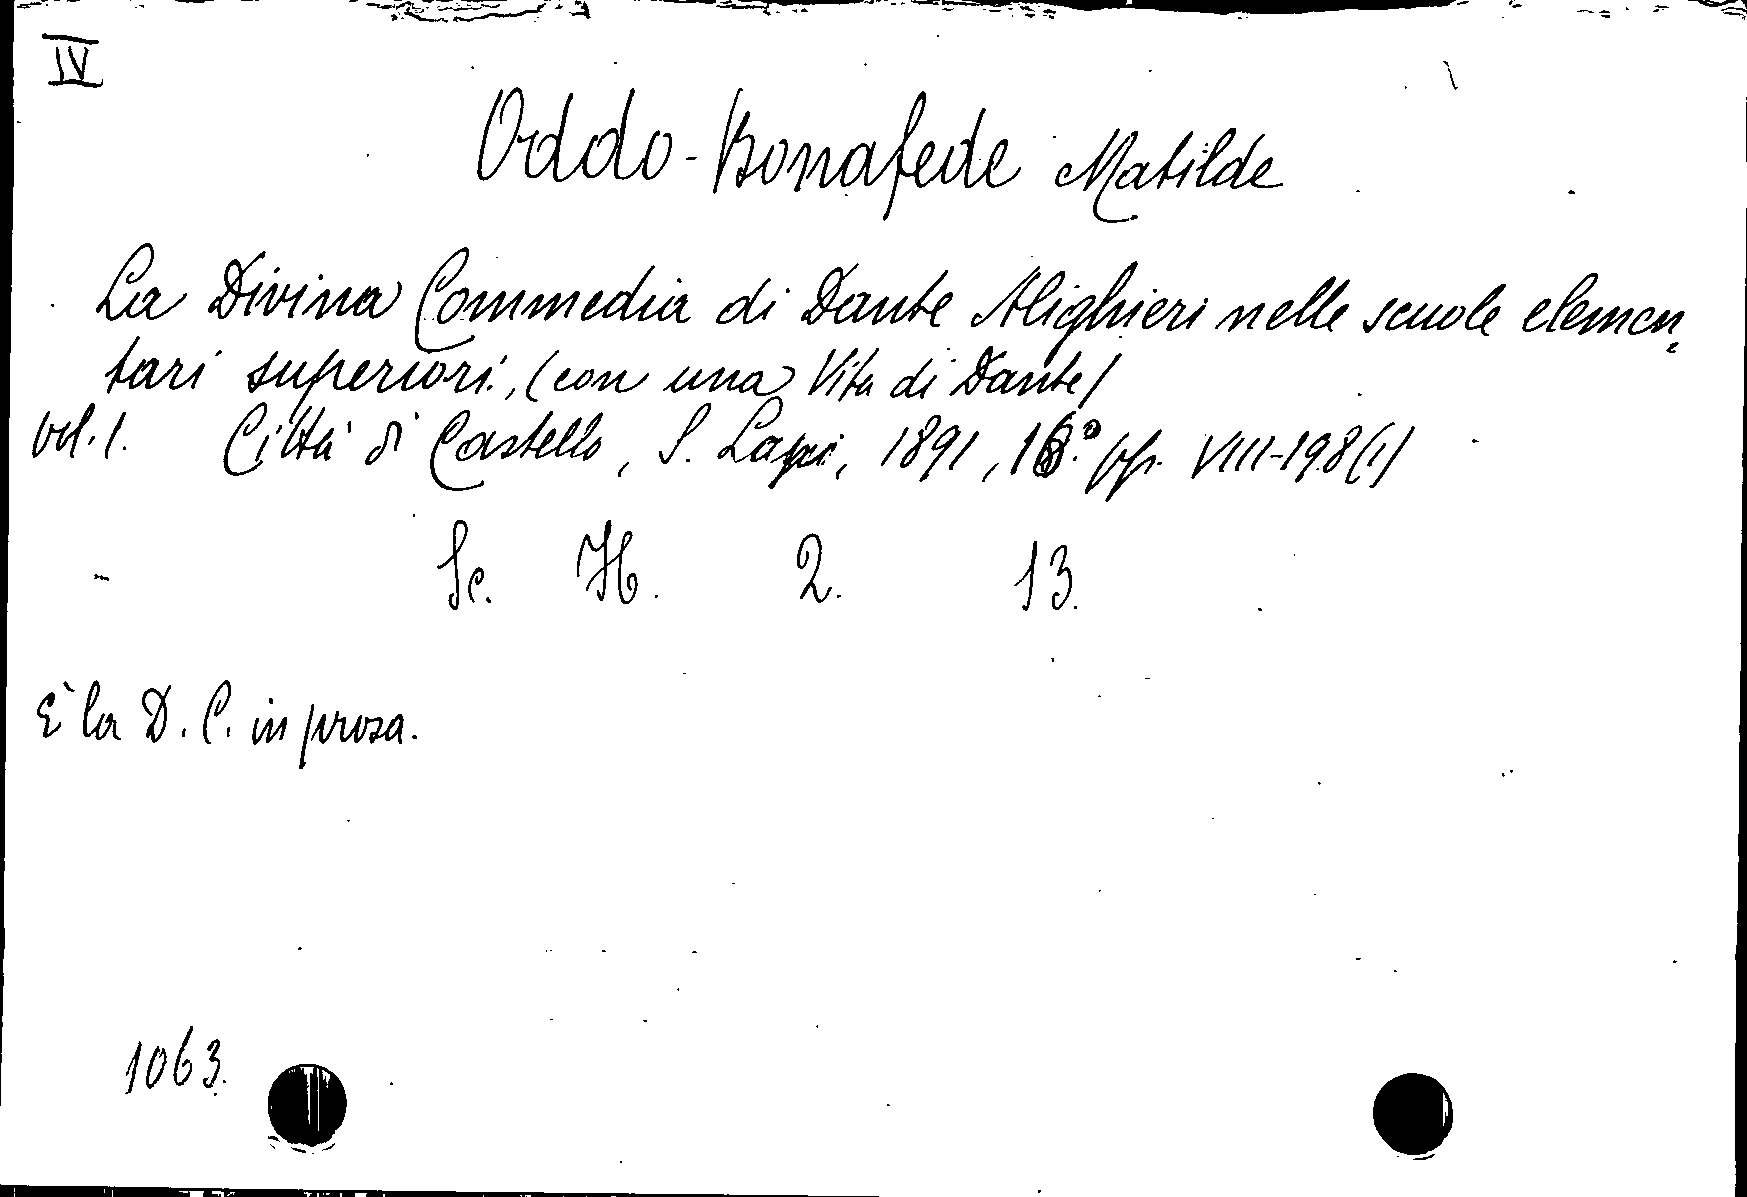 IV
Oddo-Bonafede Matilde
La Divina Commedia di Dante Alighieri nelle scuole elemen-
tari superiori, (con una Vita di Dante)
vol. 1. Città di Castello, S. Lapi, 1891, 16.° pp. VIII-198(1)
Sc. H. 2. 13.
È la D. C. in prosa.
1063.